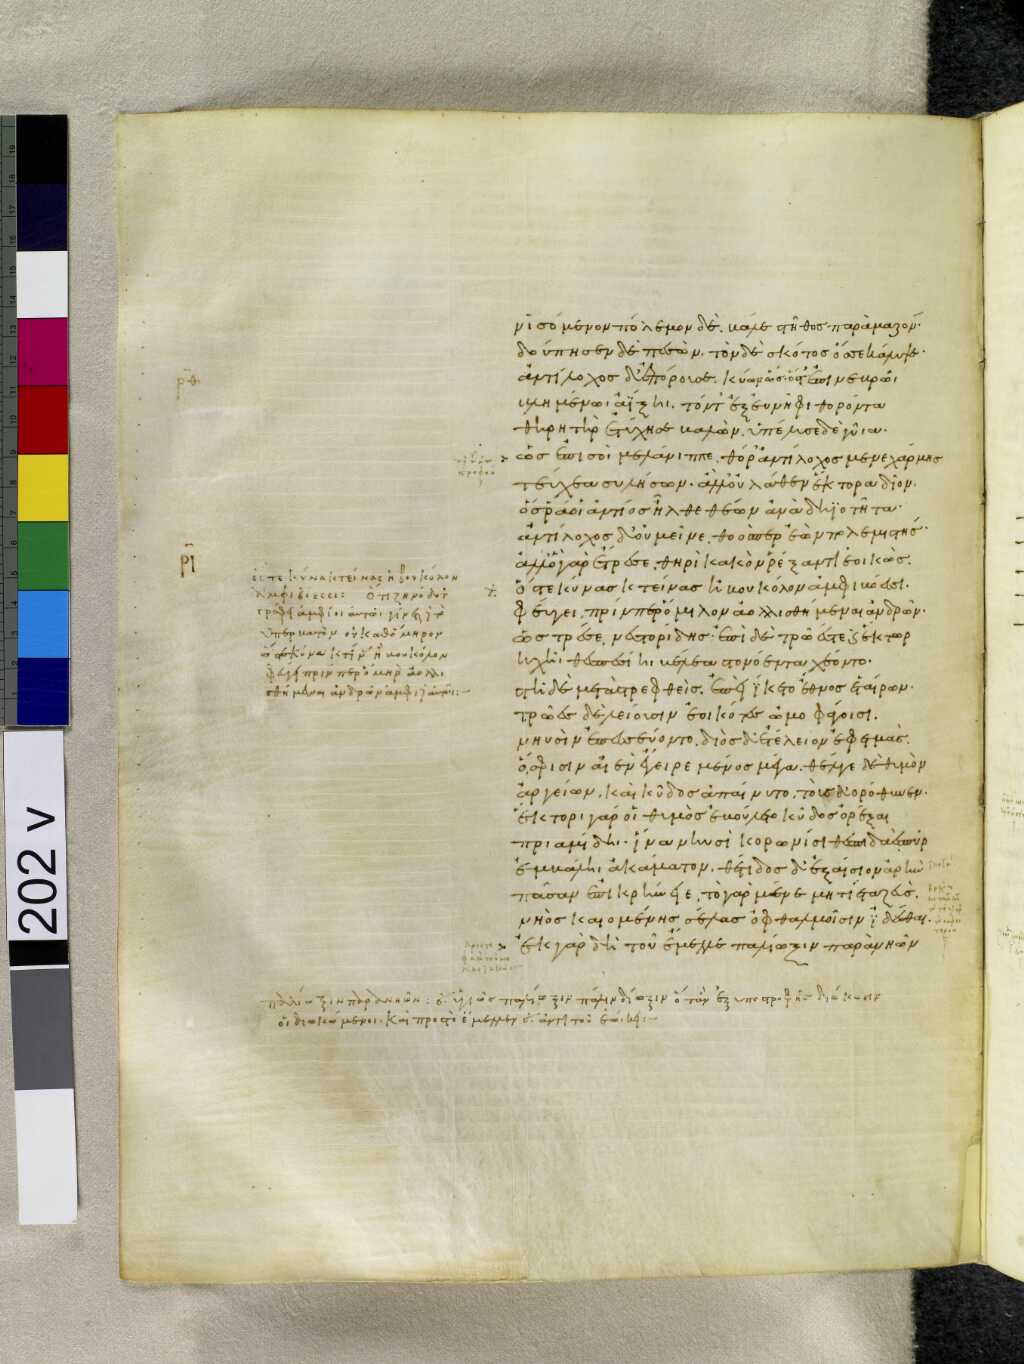 202 v
νισόμενον πόλεμον δὲ. βάλε στῆθος παρὰ μαζόν·
δούπησεν δὲ πεσὼν. τὸν δὲ σκότος ὄσσε κάλυψε·
ἀντίλοχος δ' ἐπόρουσε. κύων ὣς· ὅς τ' ἐπὶ νεβρῶι
βλημένωι ἀΐξηι. τόν τ' ἐξ εὐνῆφι θορόντα
θηρητὴρ ἐτύχησε βαλὼν. ὑπέλυσε δὲ γυῖα·
ὣς ἐπὶ σοὶ μελάνιππε. θόρ' ἀντίλοχος μενεχάρμης
τεύχεα συλήσων· ἀλλ' οὐ λάθεν ἕκτορα δῖον.
ὅς ῥά οἱ ἀντίος ἦλθε θέων ἀνὰ δηϊοτῆτα·
ἀντίλοχος δ' οὐ μεῖνε. θοός περ ἐὼν πολεμιστής·
ἀλλ' ὅ γὰρ ἔτρεσε. θηρὶ κακὸν ῥέξαντι ἐοικὼς.
ὅς τε κύνα κτείνας ἢ βουκόλον ἀμφὶ βόεσσι.
φεύγει. πρίν περ ὅμιλον ἀολλισθήμεναι ἀνδρῶν·
ὣς τρέσε νεστορίδης· ἐπὶ δὲ τρῶές τε καὶ ἕκτωρ
ἠχῆι θεσπεσίηι βέλεα στονόεντα χέοντο·
στῆ δὲ μεταστρεφθεὶς. ἐπεὶ ἵκετο ἔθνος ἑταίρων·
τρῶες δὲ λείουσιν ἐοικότες ὠμοφάγοισι.
νηυσὶν ἐπεσσεύοντο. διὸς δ' ἐτέλειον ἐφετμὰς.
ὅ σφισιν αἰὲν ἔγειρε μένος μέγα. θέλγε δὲ θυμὸν
ἀργείων. καὶ κῦδος ἀπαίνυτο. τοὺς δ' ὀρόθυνεν·
ἕκτορι γάρ οἱ θυμὸς ἐβούλετο κῦδος ὀρέξαι
πριαμίδηι. ἵνα νηυσὶ κορωνίσι θεσπιδαὲς πῦρ
ἐμβάληι ἀκάματον. θέτιδος δ' ἐξαίσιον ἀρὴν
πᾶσαν ἐπικρήνειε. τὸ γὰρ μένε μητίετα ζεὺς.
νηὸς καιομένης σέλας ὀφθαλμοῖσιν ἰδέσθαι.
ἐκ γὰρ δὴ τοῦ ἔμελλε παλίωξιν παρὰ νηῶν
ὅς τε κύνα κτείνας ἢ βουκόλον
ἀμφὶ βόεσσι: ὅτι ζηνόδοτος
γράφει ἀμφί οἱ αὐτῶι
βουκόλον
φεύγει πρίν περ ὅμιλον ἀολλι
σθήμεναι ἀνδρῶν ἀμφί οἱ αὐτῶι:
παλίωξιν παρὰ νηῶν: παλίωξιν πάλιν δίωξιν ὅταν ἐξ ὑποστροφῆς διώκωσιν
οἱ διωκόμενοι. καὶ πρὸς τὸ ἔμελλεν ἀντὶ τοῦ ἐώικει: